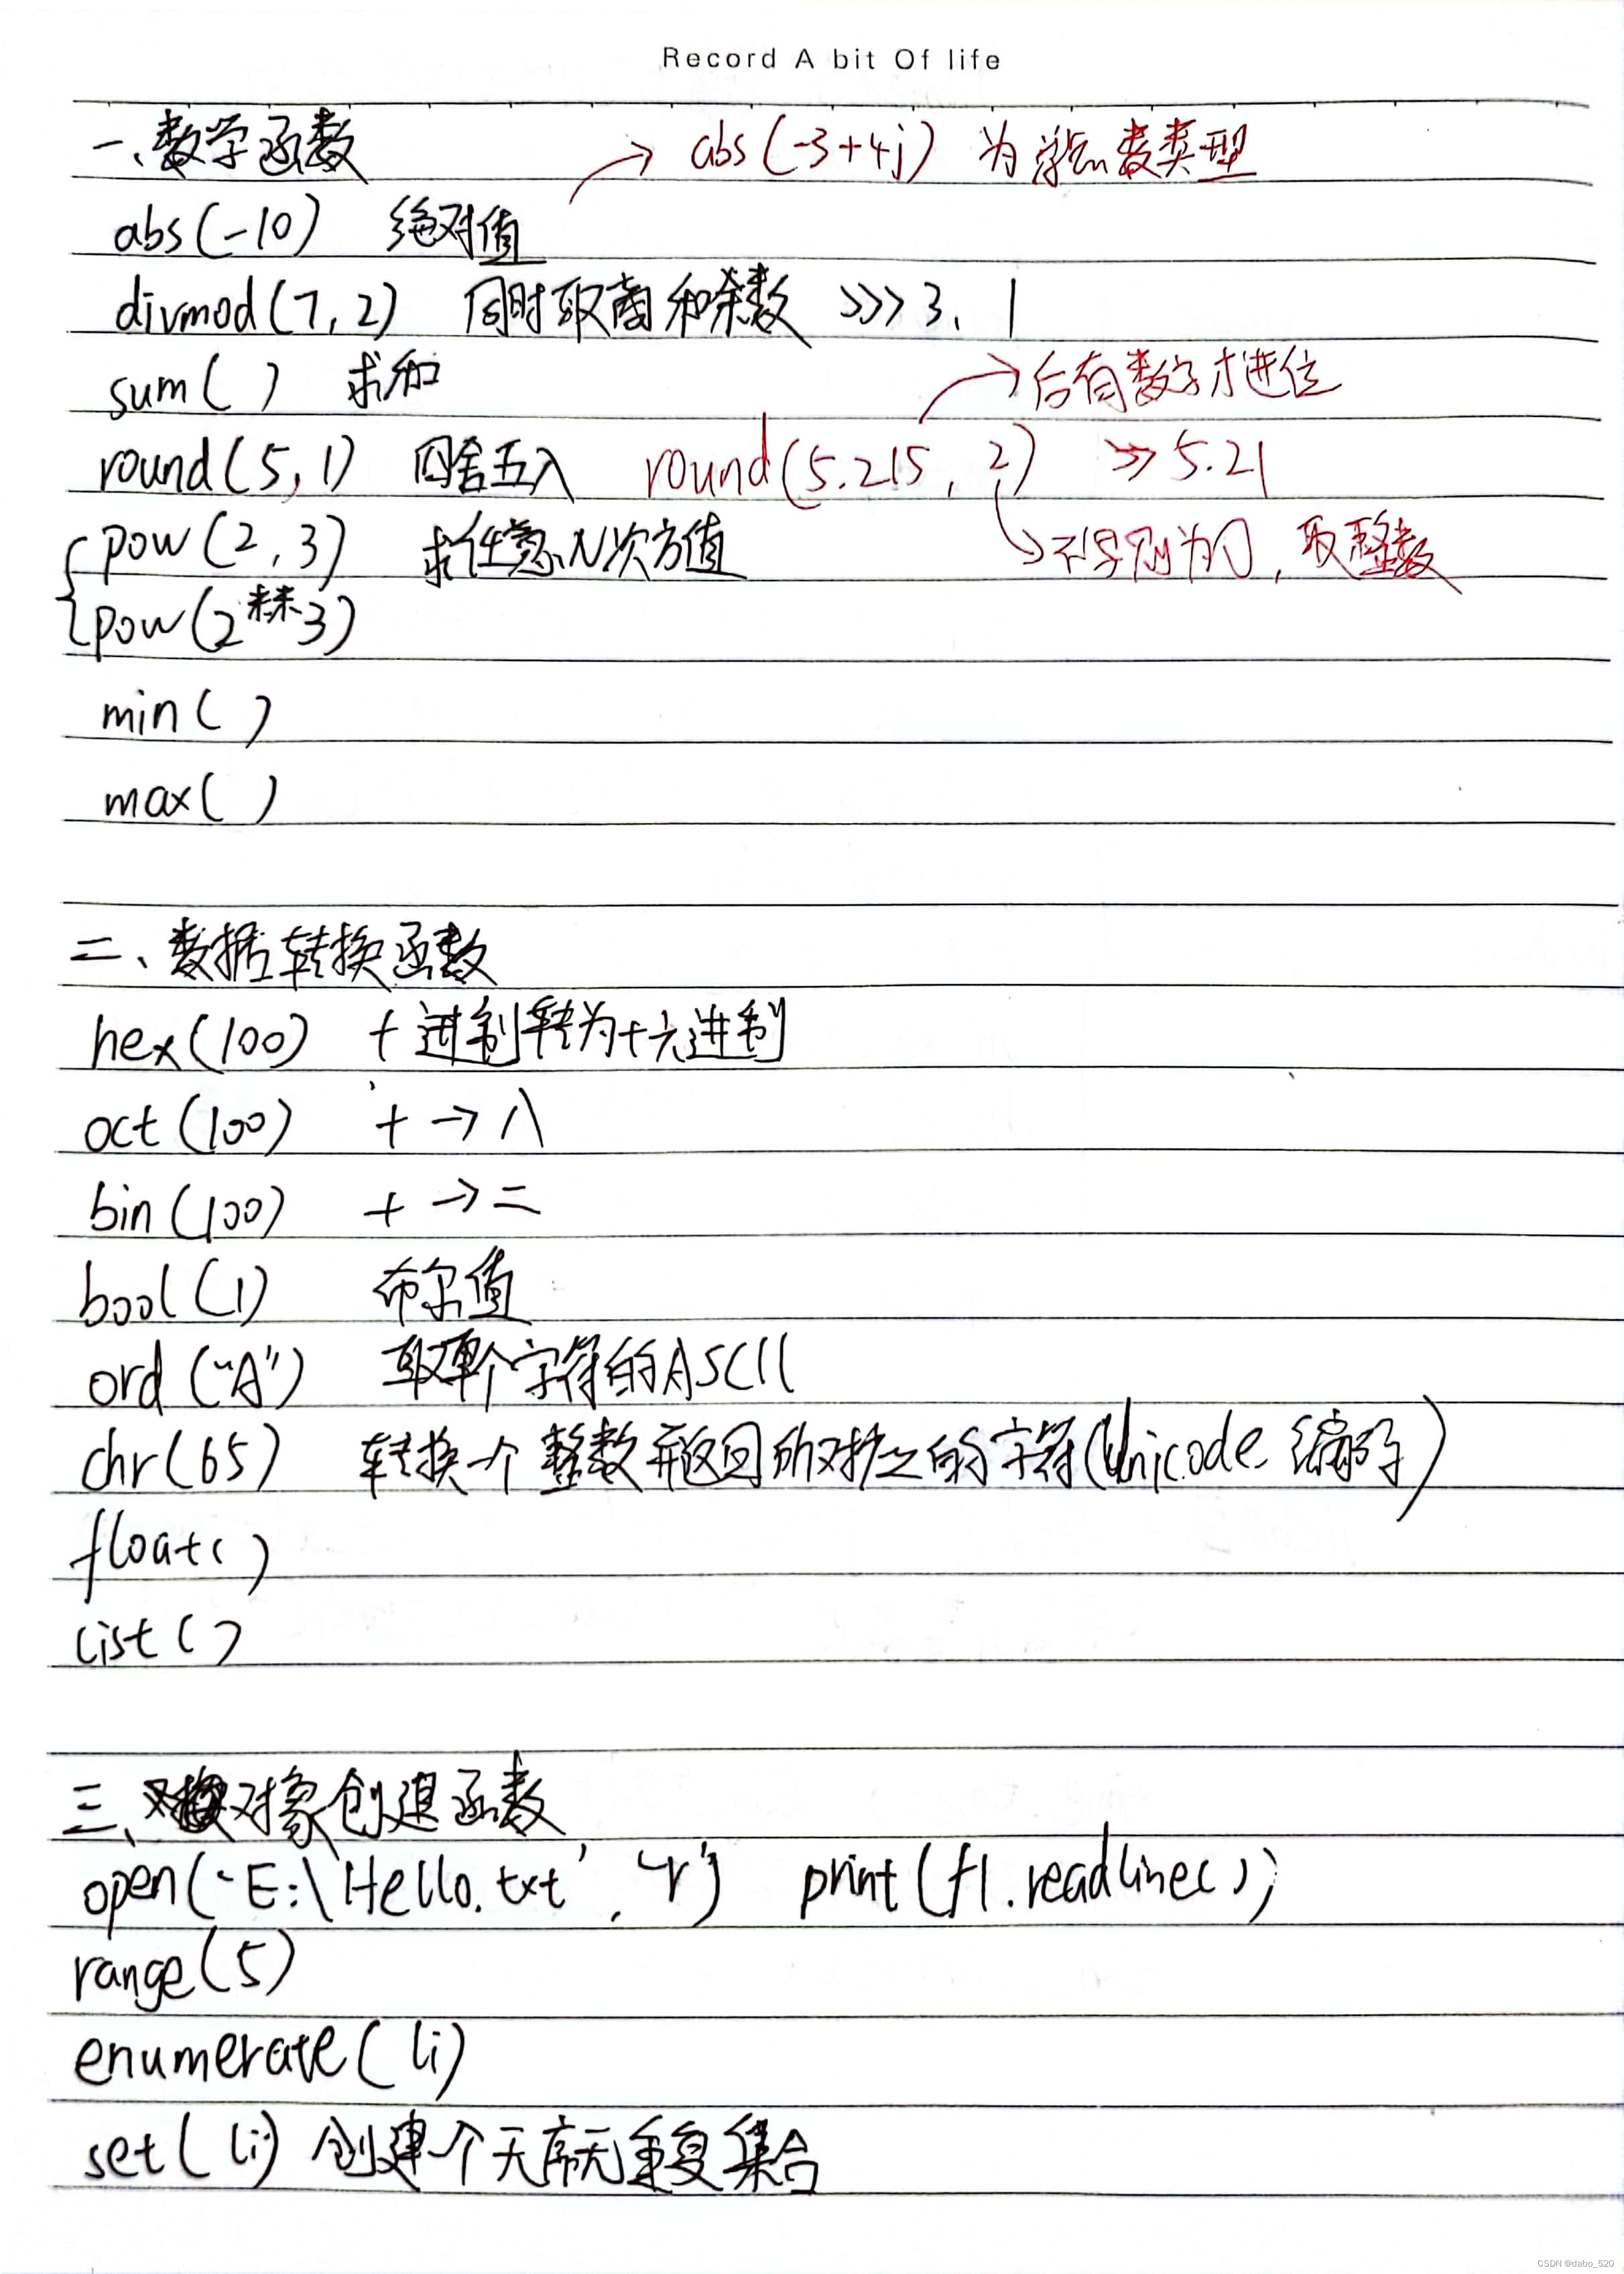 Record A bit Of life
一、数学函数
abs(-3+4j) 为浮点数类型
abs(-10) 绝对值
divmod(7,2) 同时取商和余数 >>>3、1
sum( ) 求和
后有数字才进位
round(5,1) 四舍五入 round(5.215, 2) >> 5.21
pow(2,3) 求任意N次方值
不写则为0,取整数
pow(2**3)
min( )
max( )
二、数据转换函数
hex(100) 十进制转为十六进制
oct(100) 十→八
bin(100) 十→二
bool(1) 布尔值
ord("A") 取单个字符的ASCII
chr(65) 转换一个整数并返回所对应的字符(Unicode编码)
float( )
list( )
三、对象创建函数
open('E:\Hello.txt','r') print(f1.readline());
range(5)
enumerate(li)
set(li) 创建一个无序无重复集合
CSDN @dabo_520